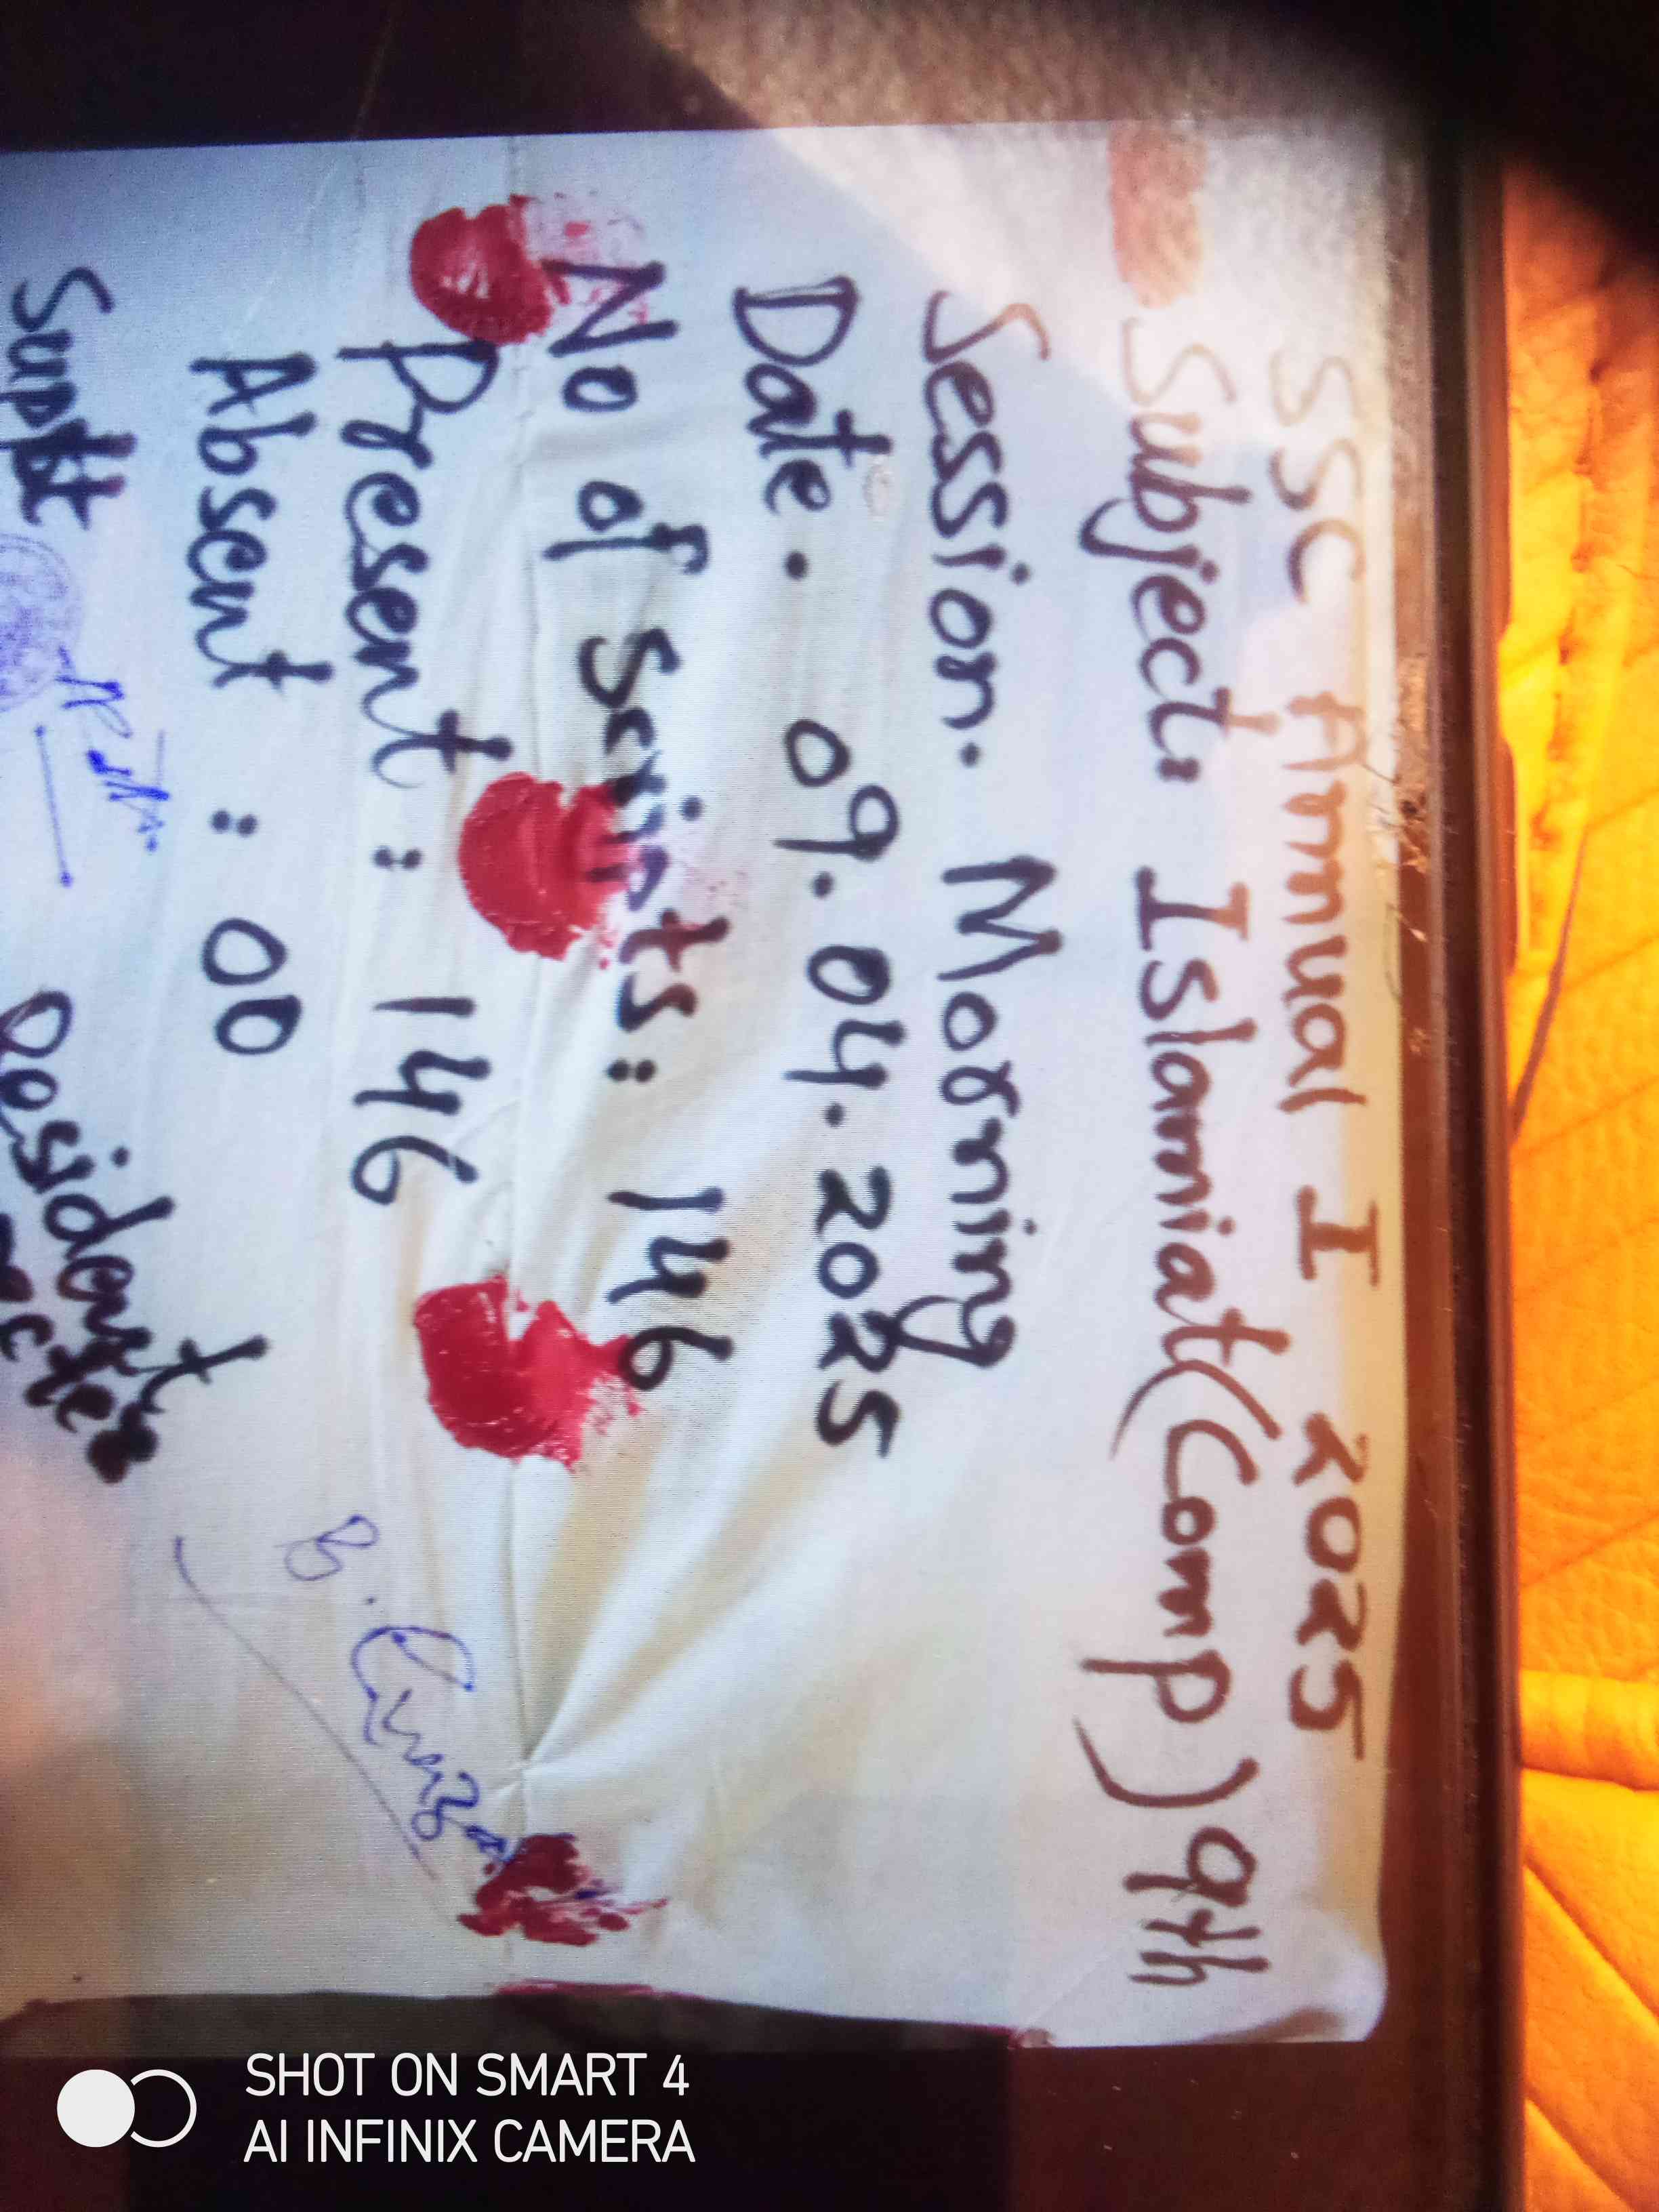 SSC Annual I 2025
Subject: Islamiat (Comp) 9th
Session. Morning
Date. 09.04.2025
No of Scripts: 146
Present: 146
Absent: 00
Suptt
Resident
SHOT ON SMART 4
AI INFINIX CAMERA